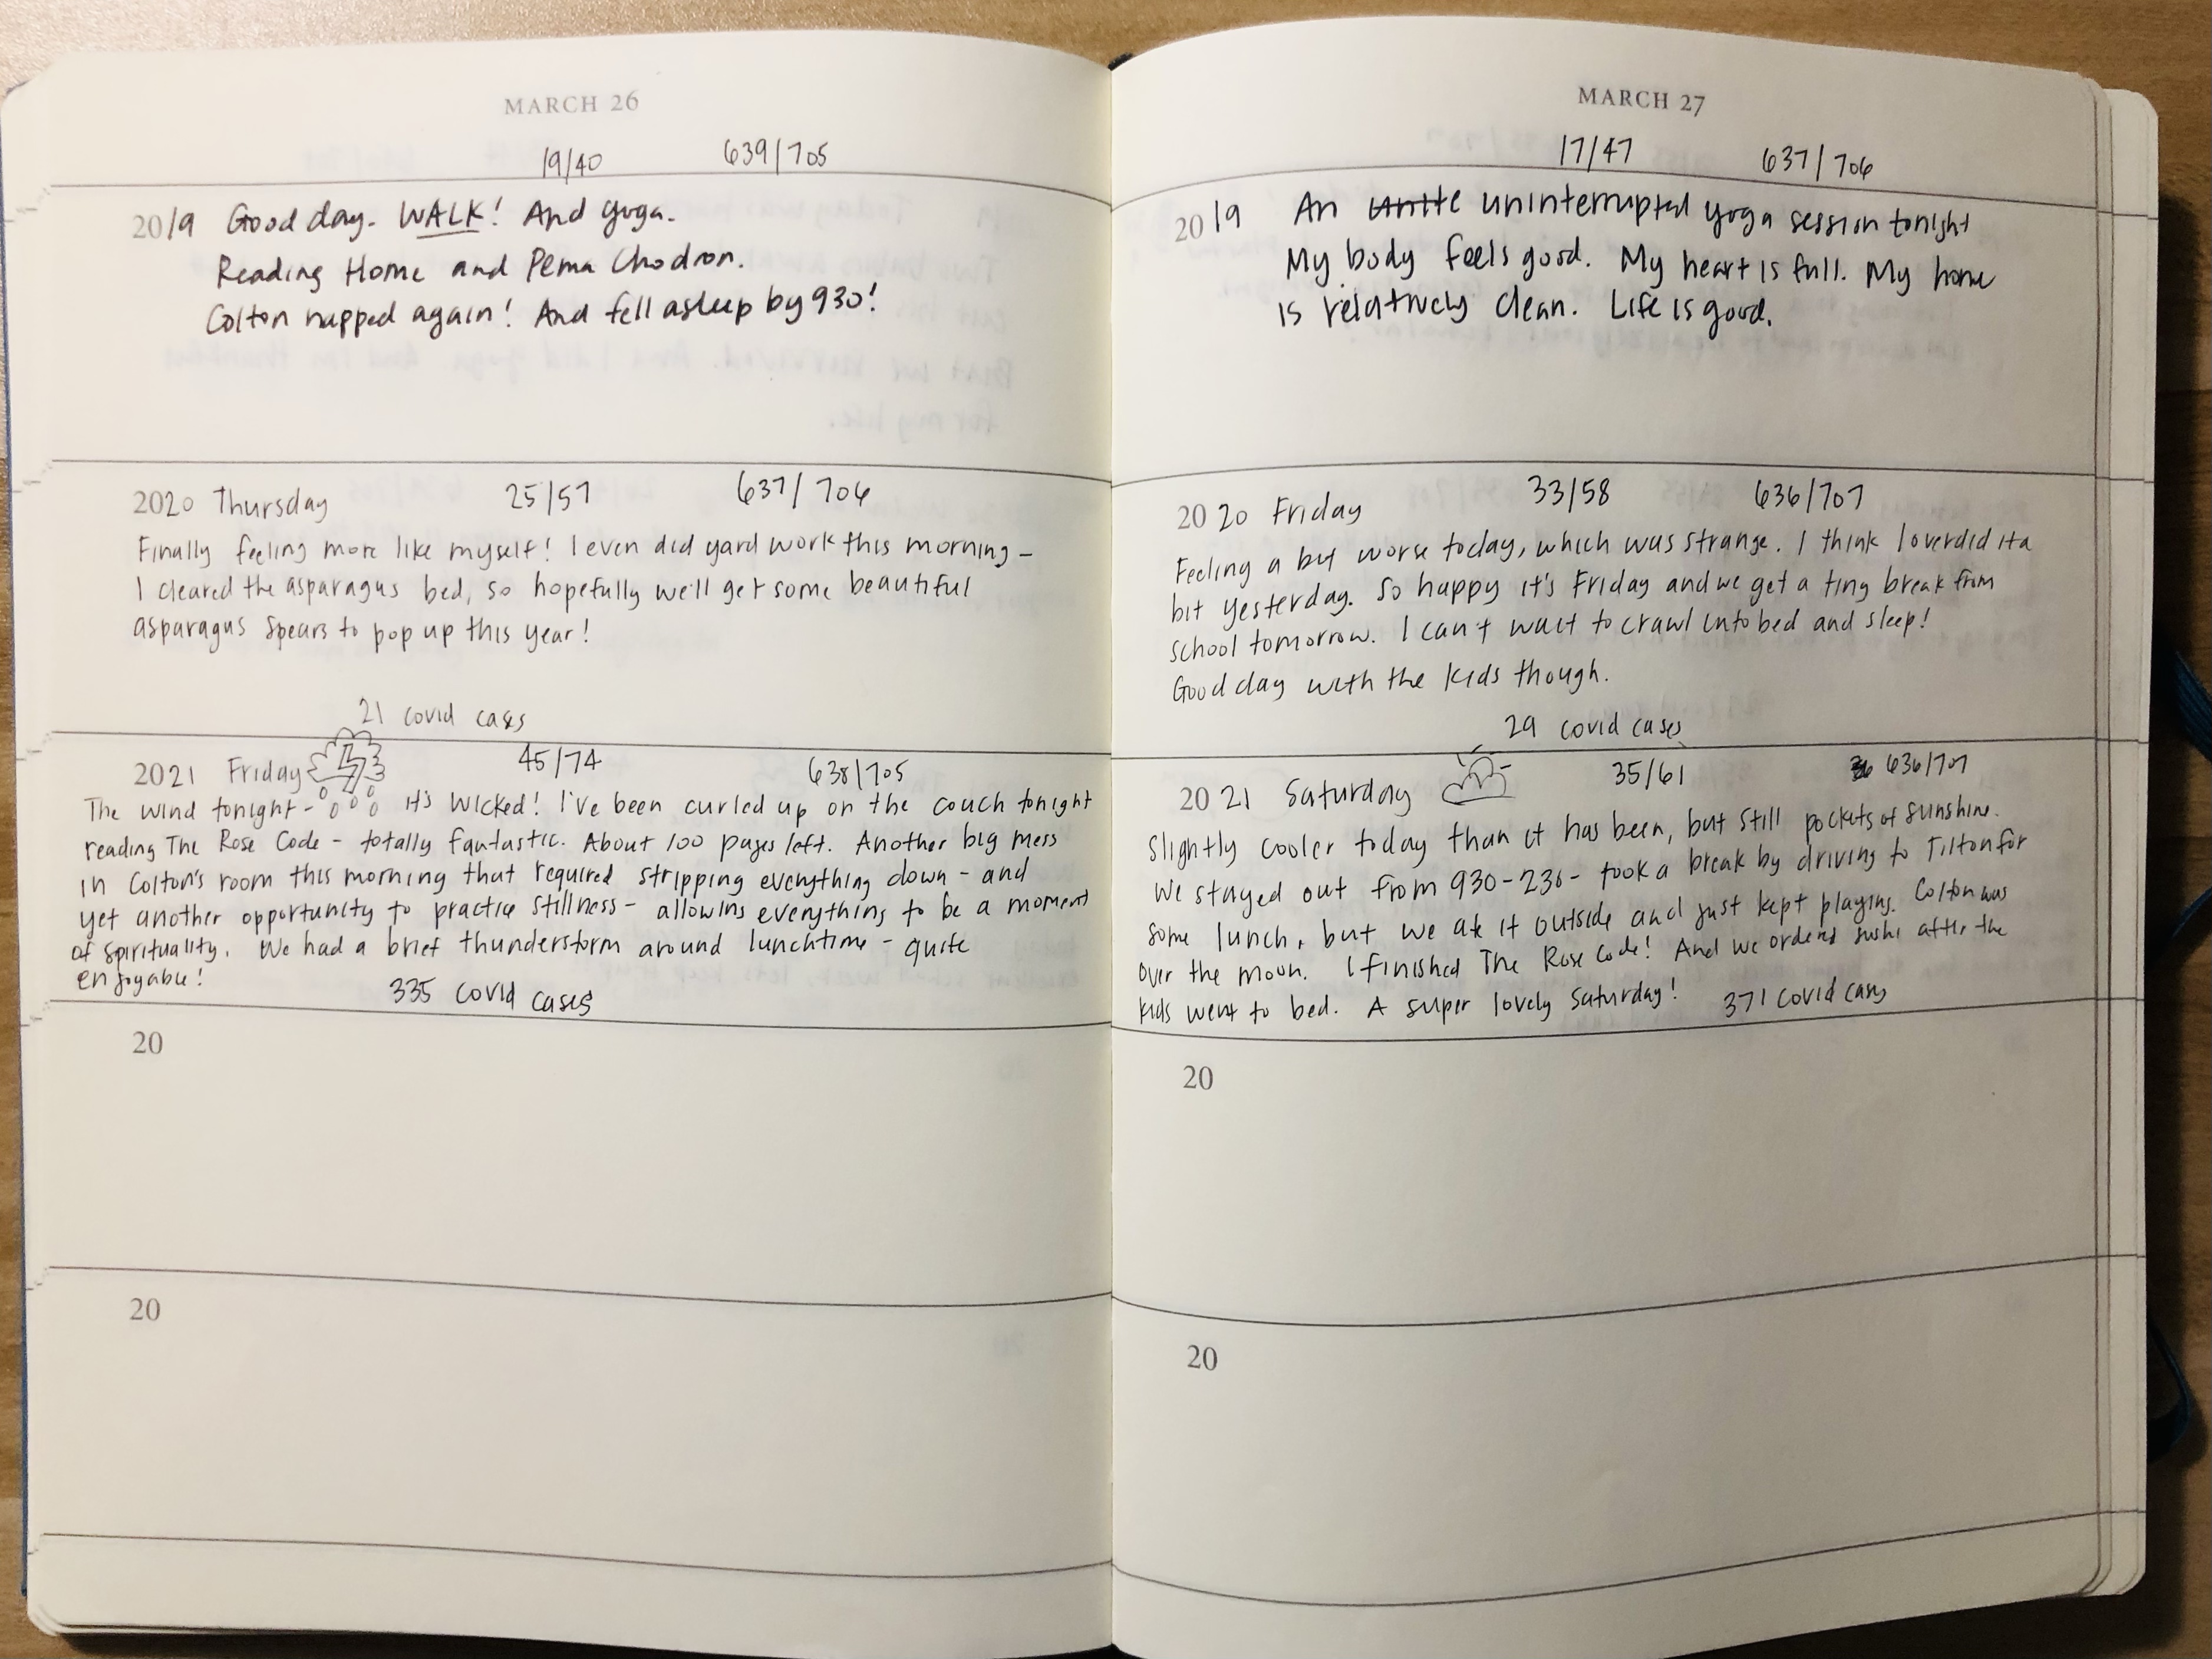 MARCH 26
19/40 639/705
2019 Good day. WALK! And yoga.
Reading Home and Pema Chodron.
Colton napped again! And fell asleep by 930!
2020 Thursday 25/57 637/706
Finally feeling more like myself! I even did yard work this morning -
I cleared the asparagus bed, so hopefully we'll get some beautiful
asparagus spears to pop up this year!
21 covid cases
2021 Friday 45/74 638/705
The wind tonight - it's wicked! I've been curled up on the couch tonight
reading The Rose Code - totally fantastic. About 100 pages left. Another big mess
in Colton's room this morning that required stripping everything down - and
yet another opportunity to practice stillness - allowing everything to be a moment
of spirituality. We had a brief thunderstorm around lunchtime - quite
enjoyable!
335 covid cases
20
20
MARCH 27
17/47 637/706
2019 An uninterrupted yoga session tonight
My body feels good. My heart is full. My home
is relatively clean. Life is good.
2020 Friday 33/58 636/707
Feeling a bit worse today, which was strange. I think I overdid it a
bit yesterday. So happy it's Friday and we get a tiny break from
school tomorrow. I can't wait to crawl into bed and sleep!
Good day with the kids though.
29 covid cases
2021 Saturday 35/61 636/707
Slightly cooler today than it has been, but still pockets of sunshine.
We stayed out from 930-230 - took a break by driving to Tilton for
some lunch, but we ate it outside and just kept playing. Colton was
over the moon. I finished The Rose Code! And we ordered sushi after the
kids went to bed. A super lovely Saturday! 371 covid cases
20
20